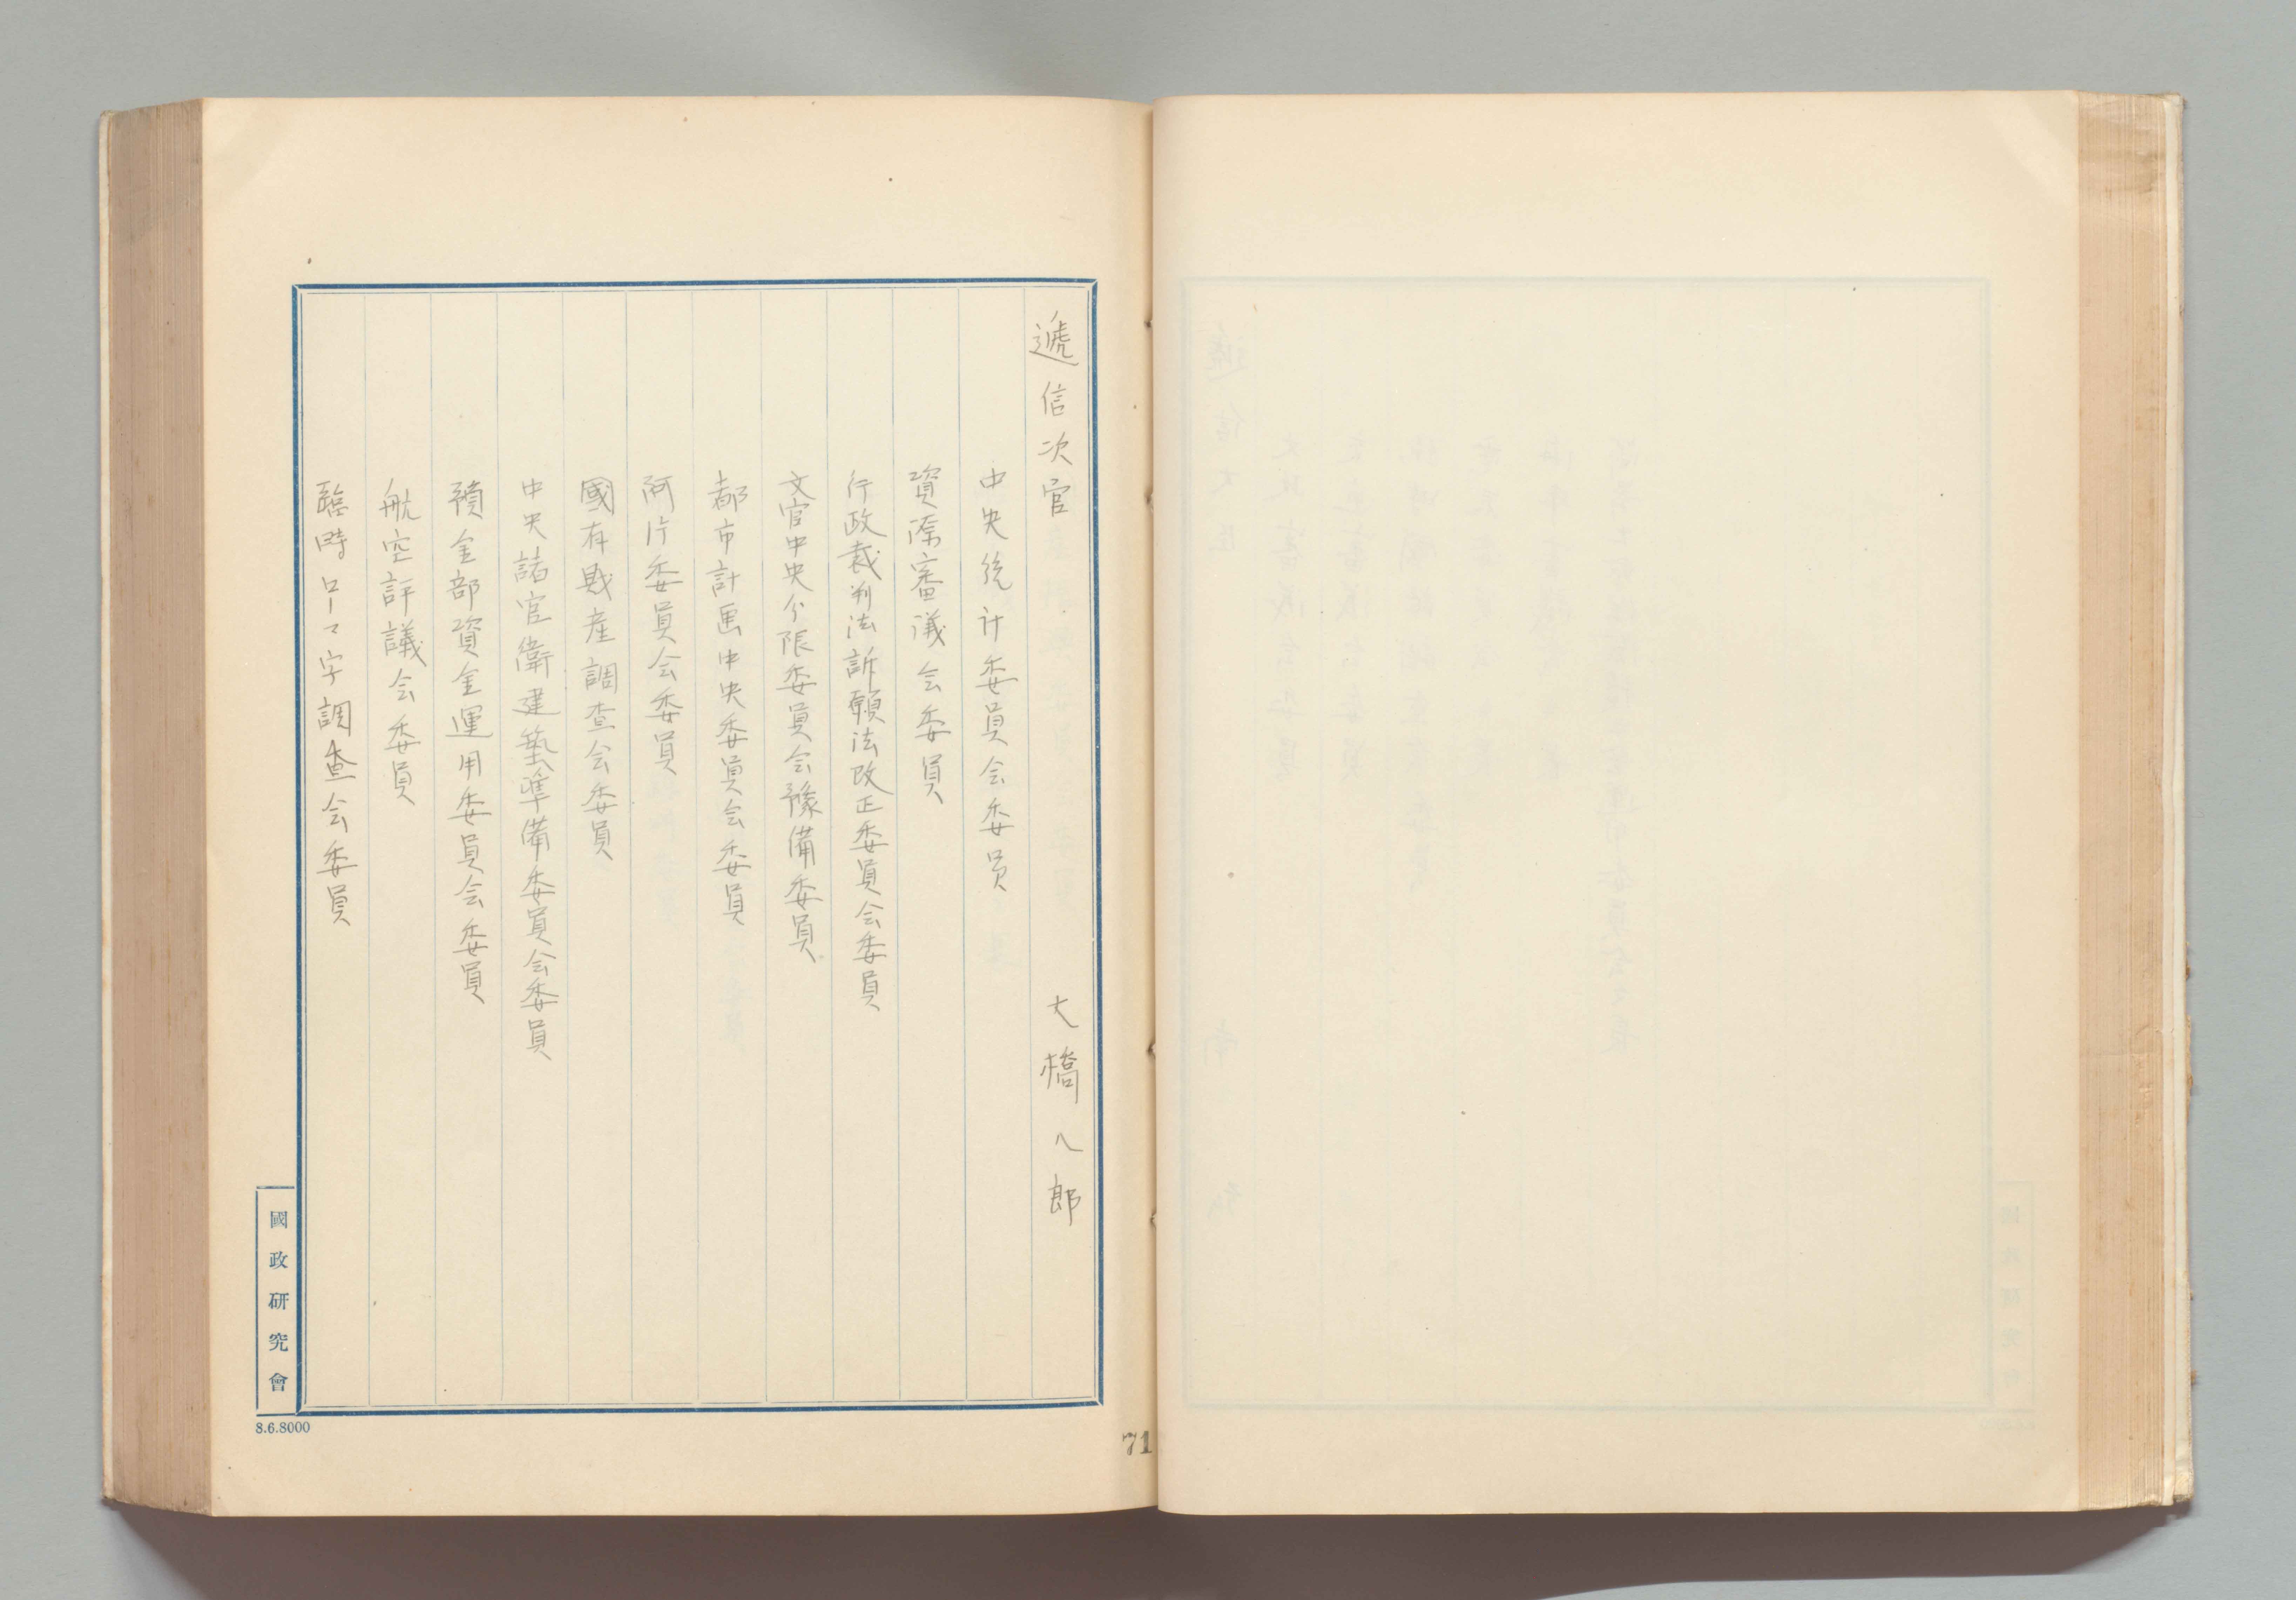 遞信次官　大橋八郎
中央統計委員会委員
資源審議会委員
行政裁判法訴願法改正委員会委員
文官中央分限委員会豫備委員
都市計画中央委員会委員
阿片委員会委員
國有財産調査会委員
中央諸官衙建築準備委員会委員
預金部資金運用委員会委員
航空評議会委員
臨時ローマ字調査会委員
國政研究會
8.6.8000
71